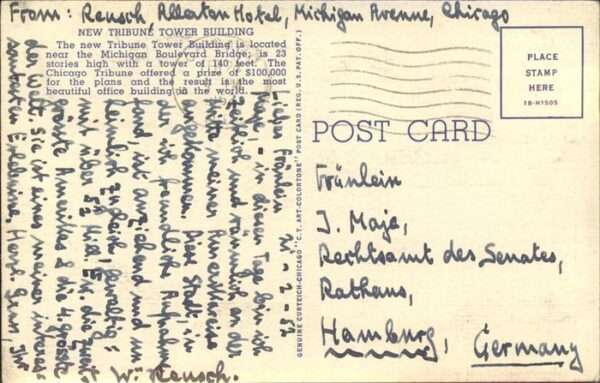 From: Reusch, Allerton Hotel, Michigan Avenue, Chicago
NEW TRIBUNE TOWER BUILDING
The new Tribune Tower Building is located
near the Michigan Boulevard Bridge; is 23
stories high with a tower of 140 feet. The
Chicago Tribune offered a prize of $100,000
for the plans and the result is the most
beautiful office building in the world.
21-2-52
Liebes Fräulein
Maje, - in diesen Tagen bin ich
zeitlich und räumlich an der
Mitte meiner Amerikareise
angekommen. Diese Stadt, in
der ich freundliche Aufnahme
fand, ist anziehend und un
heimlich zugleich: gewaltig:
mit über 5½ Mill. E. ist die zweit
grösste Amerikas & die 4. grösste
der Welt. Sie ist eines meiner interes-
santesten Erlebnisse. Herzl. Gruss, Ihr
W. Reusch.
GENUINE CURTEICH-CHICAGO "C.T. ART-COLORTONE" POST CARD (REG. U.S. PAT. OFF.)
PLACE
STAMP
HERE
POST CARD
Fräulein
J. Maje,
Rechtsamt des Senates,
Rathaus,
Hamburg, Germany